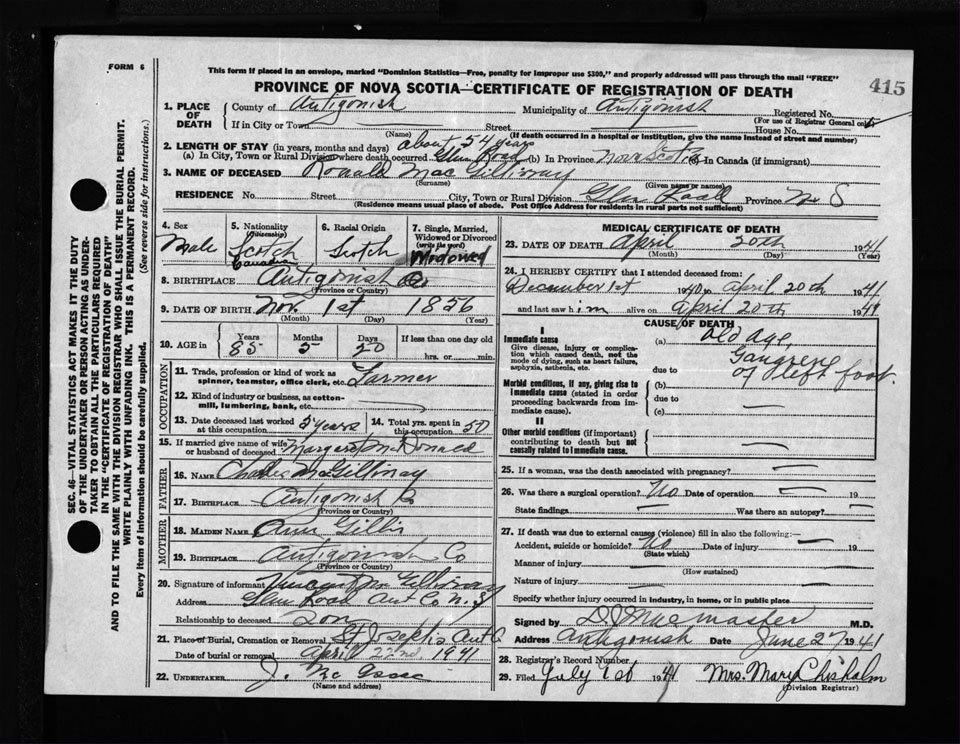 FORM 6
This form if placed in an envelope, marked "Dominion Statistics—Free, penalty for improper use $300," and properly addressed will pass through the mail "FREE"
415
PROVINCE OF NOVA SCOTIA—CERTIFICATE OF REGISTRATION OF DEATH
SEC. 46—VITAL STATISTICS ACT MAKES IT THE DUTY
OF THE UNDERTAKER OR PERSON ACTING AS UNDER-
TAKER TO OBTAIN ALL THE PARTICULARS REQUIRED
IN THE "CERTIFICATE OF REGISTRATION OF DEATH"
AND TO FILE THE SAME WITH THE DIVISION REGISTRAR WHO SHALL ISSUE THE BURIAL PERMIT.
WRITE PLAINLY WITH UNFADING INK. THIS IS A PERMANENT RECORD.
Every item of information should be carefully supplied. (See reverse side for instructions.)
1. PLACE OF DEATH
County of Antigonish Municipality of Antigonish Registered No.
(For use of Registrar General only)
If in City or Town Street House No.
(Name) (If death occurred in a hospital or institution, give the name instead of street and number)
2. LENGTH OF STAY (in years, months and days) about 54 years
(a) In City, Town or Rural Division where death occurred Glen Road (b) In Province Nova Scotia (c) In Canada (if immigrant)
3. NAME OF DECEASED Ronald Mac Gillivray
(Surname) (Given name or names)
RESIDENCE No. Street City, Town or Rural Division Glen Road Province N S
(Residence means usual place of abode. Post Office Address for residents in rural parts not sufficient)
4. Sex Male
5. Nationality (Citizenship) Scotch Canadian
6. Racial Origin Scotch
7. Single, Married, Widowed or Divorced (write the word) Widowed
8. BIRTHPLACE Antigonish Co
(Province or Country)
9. DATE OF BIRTH Nov. 1st 1856
(Month) (Day) (Year)
10. AGE IN Years 85 Months 5 Days 20 If less than one day old
hrs. or min.
OCCUPATION
11. Trade, profession or kind of work as spinner, teamster, office clerk, etc. Farmer
12. Kind of industry or business, as cotton-mill, lumbering, bank, etc. —
13. Date deceased last worked at this occupation 5 years
14. Total yrs. spent in this occupation 50
15. If married give name of wife or husband of deceased Margaret McDonald
FATHER
16. NAME Charles McGillivray
17. BIRTHPLACE Antigonish Co
(Province or Country)
MOTHER
18. MAIDEN NAME Ann Gillis
19. BIRTHPLACE Antigonish Co
(Province or Country)
20. Signature of informant Vincent McGillivray
Address Glen Road Ant Co N. S
Relationship to deceased Son
21. Place of Burial, Cremation or Removal St Josephs Ant Co
Date of burial or removal April 22nd 1941
22. UNDERTAKER J. Mc Isaac
(Name and address)
MEDICAL CERTIFICATE OF DEATH
23. DATE OF DEATH April 20th 1941
(Month) (Day) (Year)
24. I HEREBY CERTIFY that I attended deceased from:
December 1st 1940 to April 20th 1941
and last saw him alive on April 20th 1941
CAUSE OF DEATH
I
Immediate cause
Give disease, injury or complication which caused death, not the mode of dying, such as heart failure, asphyxia, asthenia, etc.
(a) Old age,
Gangrene
due to of left foot.
Morbid conditions, if any, giving rise to Immediate cause (stated in order proceeding backwards from immediate cause).
(b) —
due to
(c) —
II
Other morbid conditions (if important) contributing to death but not causally related to immediate cause.
—
25. If a woman, was the death associated with pregnancy? —
26. Was there a surgical operation? No Date of operation — 19
State findings — Was there an autopsy? —
27. If death was due to external causes (violence) fill in also the following:—
Accident, suicide or homicide? No Date of injury — 19
(State which)
Manner of injury —
(How sustained)
Nature of injury —
Specify whether injury occurred in industry, in home, or in public place
Signed by D J MacMaster M.D.
Address Antigonish Date June 27 1941
28. Registrar's Record Number
29. Filed July 1st 1941 Mrs. Mary Chisholm
(Division Registrar)